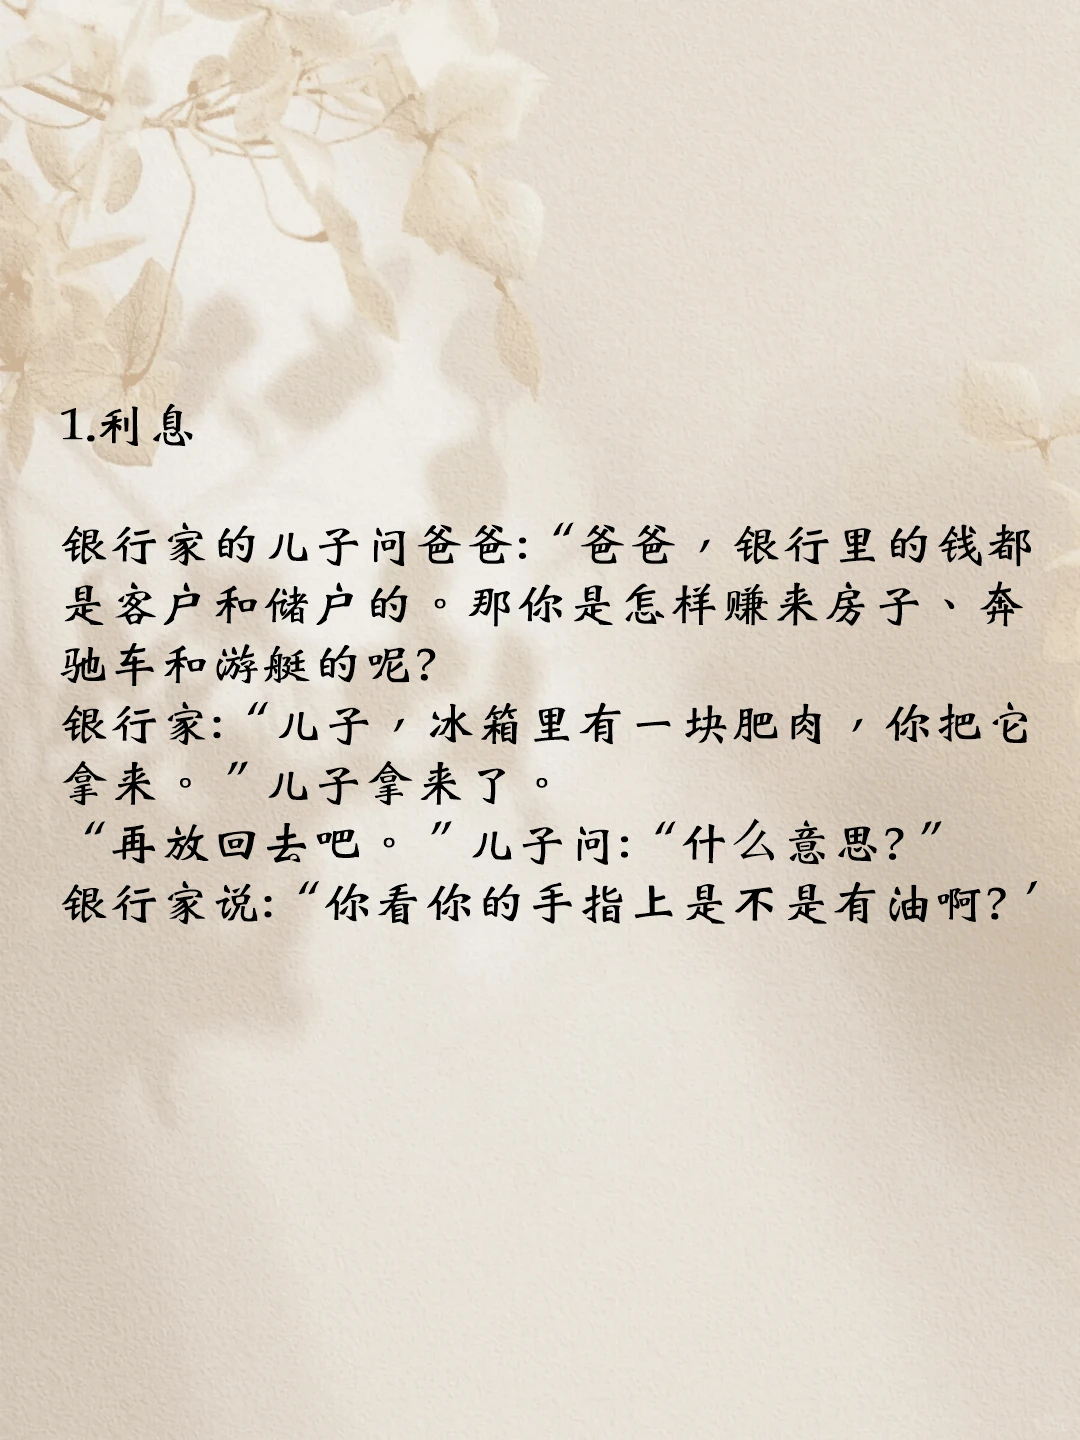 1.利息
银行家的儿子问爸爸:“爸爸，银行里的钱都
是客户和储户的。那你是怎样赚来房子、奔
驰车和游艇的呢?
银行家:“儿子，冰箱里有一块肥肉，你把它
拿来。”儿子拿来了。
“再放回去吧。”儿子问:“什么意思?”
银行家说:“你看你的手指上是不是有油啊?’